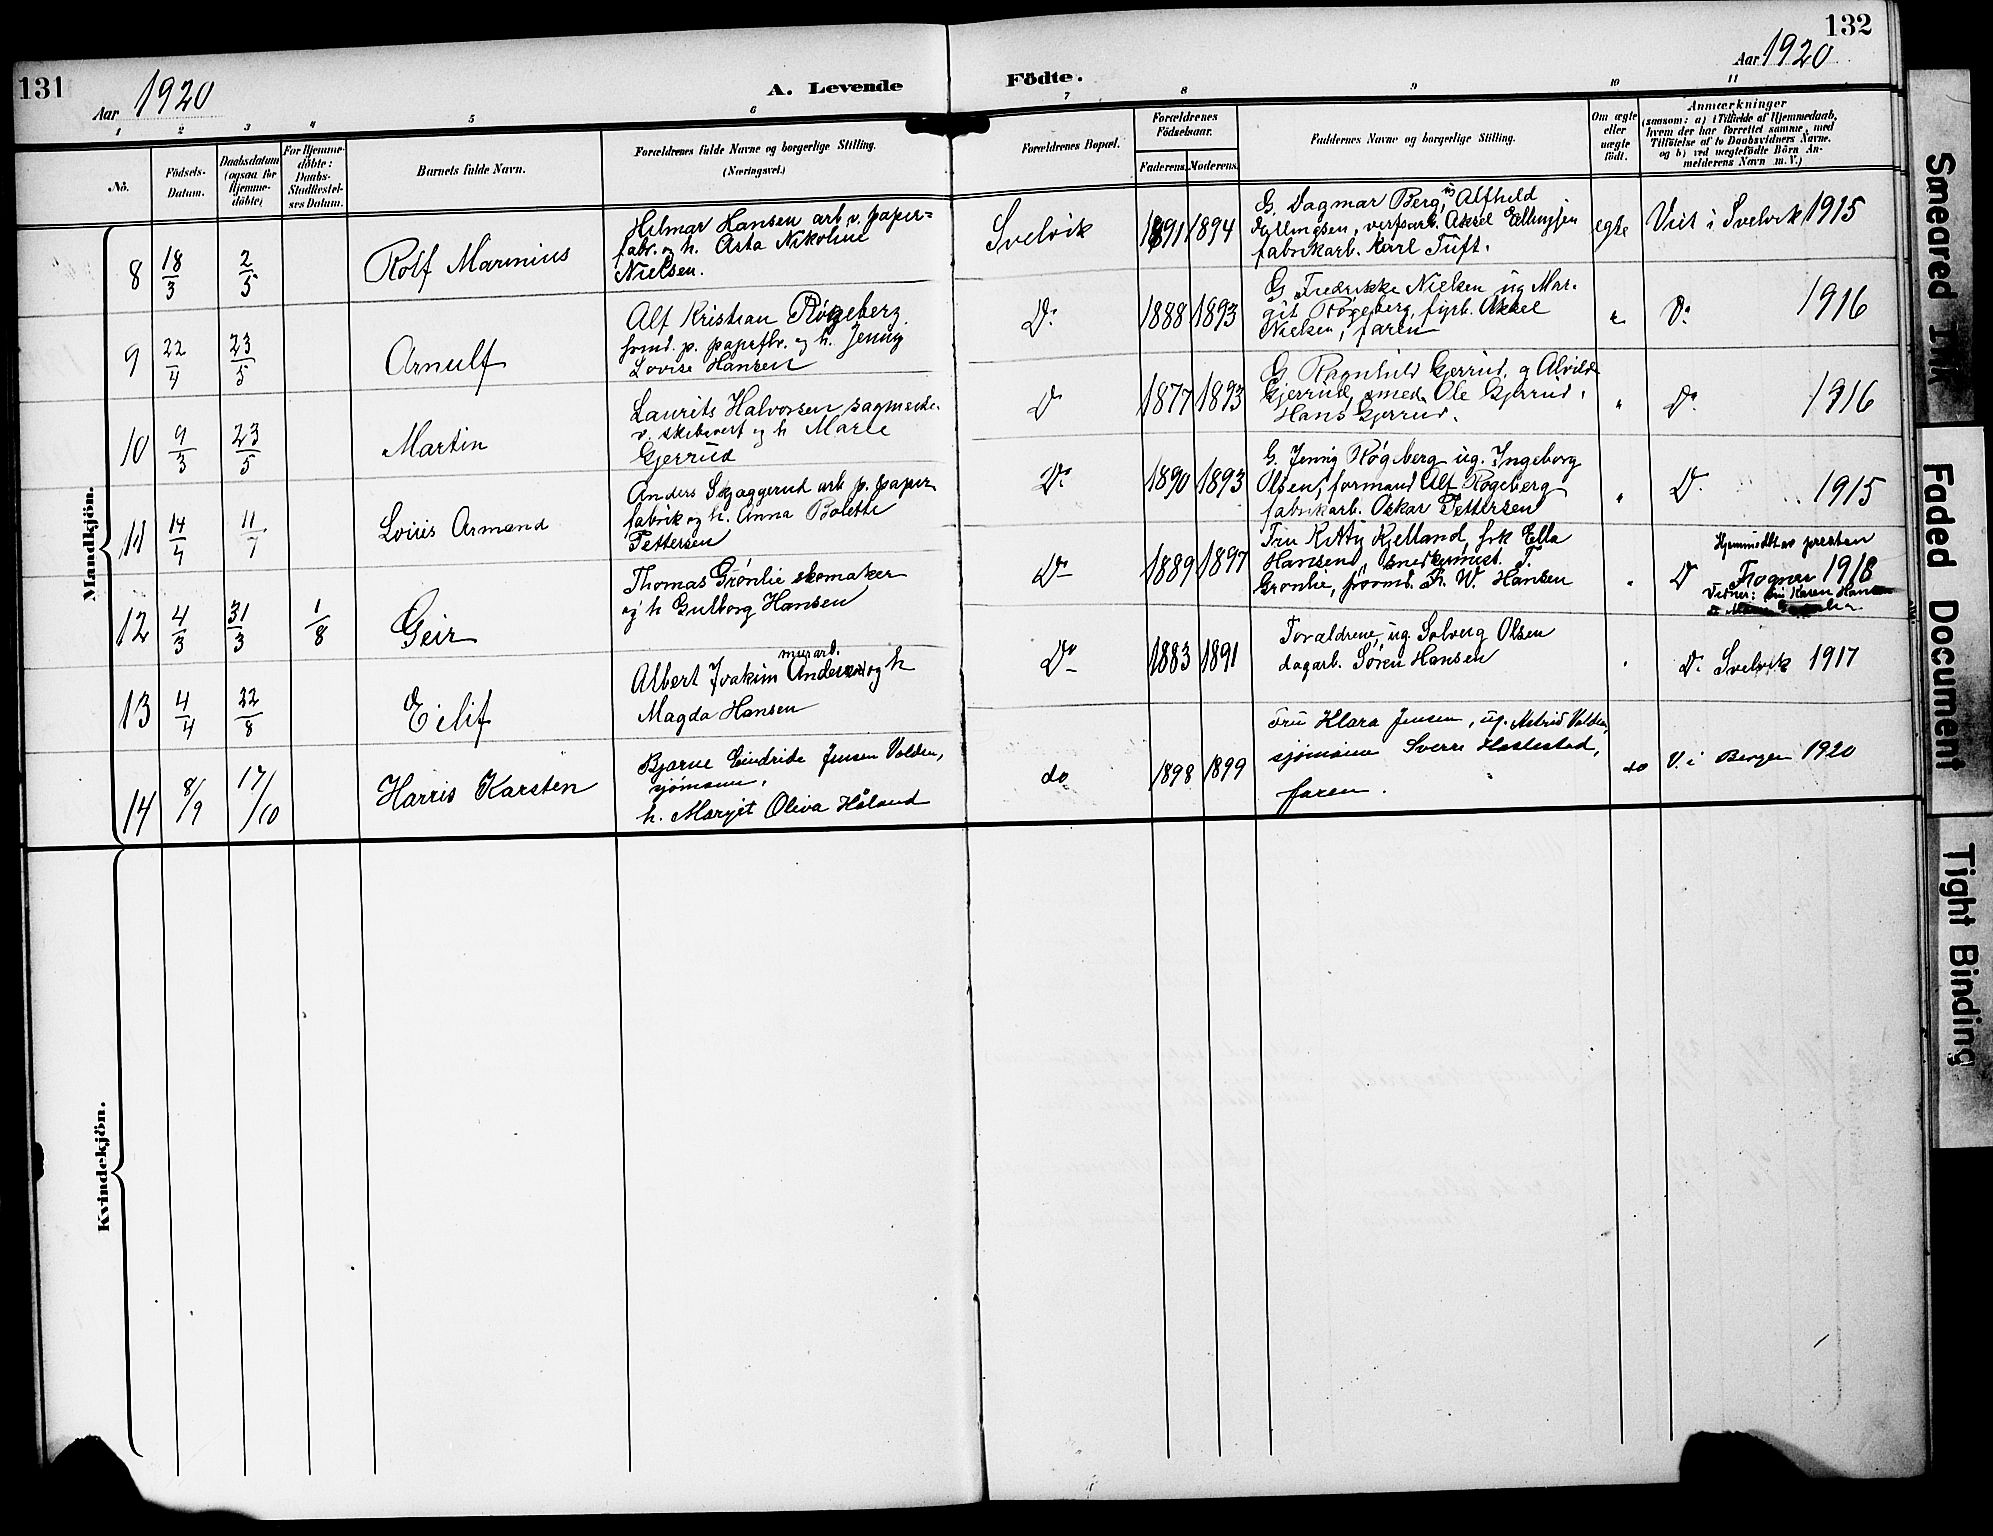 131
132
Aar 1920
A. Levende
Födte.
Aar 1920
1 2 3 4 5 6 7 8 9 10 11
No.
Födsels-
Datum.
Daabsdatum
(ogsaa for
Hjemme-
döbte)
For Hjemme-
döbte:
Daabs-
Stadfæstel-
ses Datum.
Barnets fulde Navn.
Forældrenes fulde Navne og borgerlige Stilling.
(Næringsvei.)
Forældrenes Bopæl.
Forældrenes
Födselsaar.
Faderens. Moderens.
Faddernes Navne og borgerlige Stilling.
Om ægte
eller
uægte
født.
Anmærkninger
(saasom: a) i Tilfælde af Hjemmedaab,
hvem der har forrettet samme, med
Tilføielse af to Daabsvidners Navne,
og b) ved uægtefødte Börn An-
melderens Navn m. V.)
Mandkjön.
8 18/3 2/5 Rolf Marinius
Hilmar Hansen arb. v. papir=
fabr. og h. Asta Nikoline
Nielsen.
Svelvik 1891 1894
G. Dagmar Berg, ug Alfhild
verfsarb. Aksel Ellingsen
fabrikarb. Karl Tuft.
egte Viet i Svelvik 1915
9 22/4 23/5 Arnulf
Alf Kristian Røgeberg
formd. p. papirfbr. og h. Jenny
Lovise Hansen
Do 1888 1893
G Fredrikke Nielsen ug Mar-
git Røgeberg, fyrb. Aksel
Nielsen, faren
" Do 1916
10 9/3 23/5 Martin
Laurits Halvorsen sagmester
v. skibsverf og h Marie
Gjerrud
Do 1877 1893
G Ragnhild Gjerrud, g Alvilde
Gjerrud, smed Ole Gjerrud,
Hans Gjerrud.
" Do 1916
11 14/4 11/7 Louis Armand
Anders Skjaggerud arb p. papir
fabrik og h. Anna Bolette
Pettersen
Do 1890 1893
G. Jenny Røgeberg ug. Ingeborg
Olsen, formand Alf Røgeberg
fabrikarb. Oskar Pettersen
" D. 1915
12 4/3 31/3 1/8 Geir
Thomas Grønlie skomaker
og h Gulborg Hansen
Do 1889 1897
Fru Kitty Kjelland, frk Ella
Hansen, snedkermest. T.
Grønlie, formd. W. Hansen
" D Hjemmedøbt av presten
Frogner 1918
Vidner: fru Karen Hansen
13 4/4 22/8 Eilif
murarb.
Albert Joakim Andersen og h
Magda Hansen
Do 1883 1891
Forældrene, ug Solveig Olsen
dagarb. Søren Hansen
" D. Svelvik 1917
14 8/9 17/10 Harris Karsten
Bjarne Eindride Jensen Volden,
sjømann,
h. Margit Oliva Håland
do 1898 1899
Fru Klara Jensen, ug. Astrid Volden,
sjømann Sverre Hastestad,
faren.
do V. i Bergen 1920
Kvindekjön.
Smeared Ink
Faded Document
Tight Binding